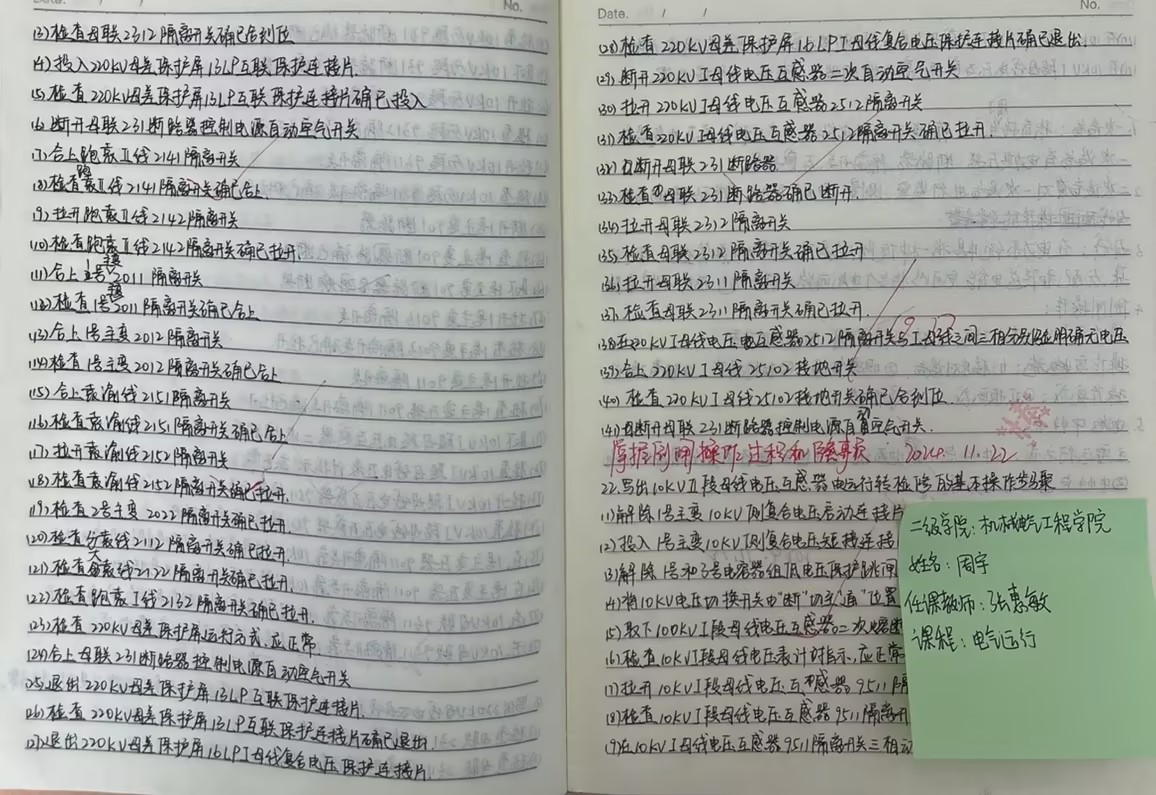 No.
(3)检查母联2312隔离开关确已合到位
(4)投入220KV母差保护屏13LP互联保护连接片.
(5)检查220KV母差保护屏13LP互联保护连接片确已投入
(6)断开母联231断路器控制电源自动空气开关
(7)合上跑袁II线2141隔离开关
(8)检查跑袁II线2141隔离开关确已合上.
(9)拉开跑袁II线2142隔离开关
(10)检查跑袁II线2142隔离开关确已拉开.
(11)合上1号主变2011隔离开关
(12)检查1号主变2011隔离开关确已合上
(13)合上1号主变2012隔离开关
(14)检查1号主变2012隔离开关确已合上
(15)合上袁渝线2151隔离开关
(16)检查袁渝线2151隔离开关确已合上
(17)拉开袁渝线2152隔离开关
(18)检查袁渝线2152隔离开关确已拉开.
(19)检查2号主变2022隔离开关确已拉开.
(20)检查分袁线2112隔离开关确已拉开
(21)检查袁线2122隔离开关确已拉开.
(22)检查跑袁I线2132隔离开关确已拉开.
(23)检查220KV母差保护屏运行方式,应正常
(24)合上母联231断路器控制电源自动空气开关
(25)退出220KV母差保护屏13LP互联保护连接片.
(26)检查220KV母差保护屏13LP互联保护连接片确已退出.
(27)退出220KV母差保护屏16LPI母线复合电压保护连接片
Date. / / No.
(28)检查220KV母差保护屏16LPI母线复合电压保护连接片确已退出.
(29)断开220KVI母线电压互感器二次自动空气开关
(30)拉开220KVI母线电压互感器2512隔离开关
(31)检查220KVI母线电压互感器2512隔离开关确已拉开.
(32)断开母联231断路器
(33)检查母联231断路器确已断开.
(34)拉开母联2312隔离开关
(35)检查母联2312隔离开关确已拉开
(36)拉开母联2311隔离开关
(37)检查母联2311隔离开关确已拉开.
(38)在220KVI母线电压互感器2512隔离开关与I母线之间三相分别验明确无电压
(39)合上220KVI母线25102接地开关
(40)检查220KVI母线25102接地开关确已合到位.
(41)断开母联231断路器控制电源自动空气开关.
掌握倒闸操作过程和 2020.11.22
22.写出10KVII段母线电压互感器由运行转检修的基本操作步骤
(1)解除1号主变10KV侧复合电压启动连接片
(2)投入1号主变10KV侧复合电压短接连接
(3)解除1号和3号电容器组低电压保护跳闸
(4)将10KV电压切换开关由"断"切至"通"位置
(5)取下100KVI段母线电压互感器二次熔断
(6)检查10KVI段母线电压表计的指示,应正常
(7)拉开10KVI段母线电压互感器9511隔
(8)检查10KVI段母线电压互感器9511隔离开
(9)在10KVI母线电压互感器9511隔离开关三相
二级学院:机械电气工程学院
姓名:周宇
任课教师:张惠敏
课程:电气运行